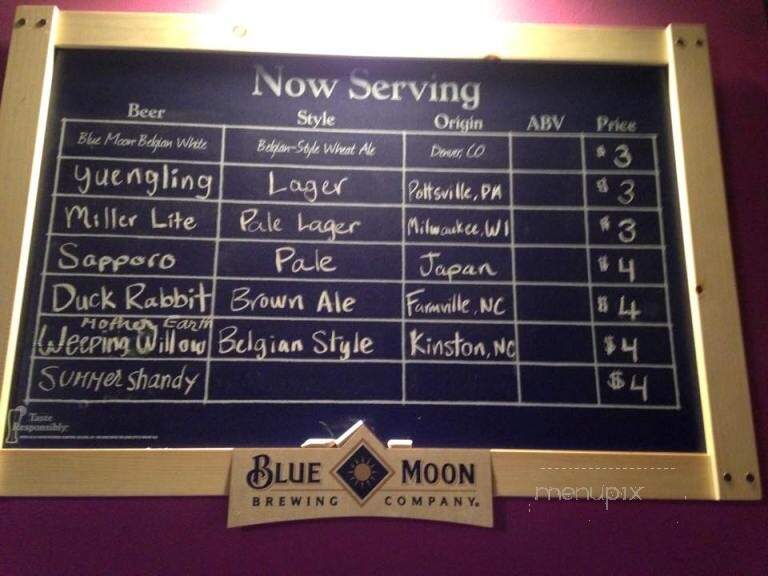 Now Serving
Beer Style Origin ABV Price
Blue Moon Belgian White Belgian-Style Wheat Ale Denver, CO $3
Yuengling Lager Pottsville, PA $3
Miller Lite Pale Lager Milwaukee, WI $3
Sapporo Pale Japan $4
Duck Rabbit Brown Ale Farmville, NC $4
Mother Earth
Weeping Willow Belgian Style Kinston, NC $4
Summer Shandy $4
Taste
Responsibly.
BLUE MOON
BREWING COMPANY.
menupix